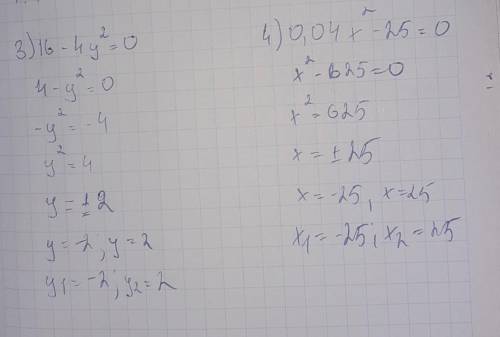 3) 16 - 4y² = 0
4 - y² = 0
-y² = -4
y² = 4
y = ±2
y = -2; y = 2
y₁ = -2; y₂ = 2
4) 0,04x² - 25 = 0
x² - 625 = 0
x² = 625
x = ±25
x = -25, x = 25
x₁ = -25; x₂ = 25